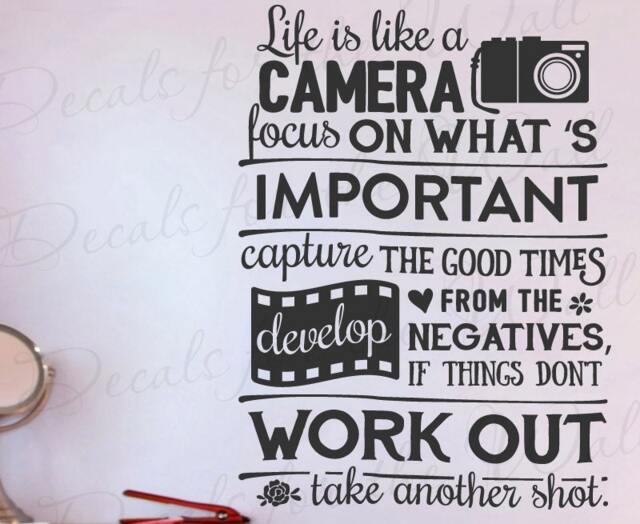 Life is like a
CAMERA
focus ON WHAT 'S
IMPORTANT
capture THE GOOD TIMES
develop FROM THE
NEGATIVES,
IF THINGS DON'T
WORK OUT
take another shot.
Decals for the Wall
Decals for the Wall
Decals for the Wall